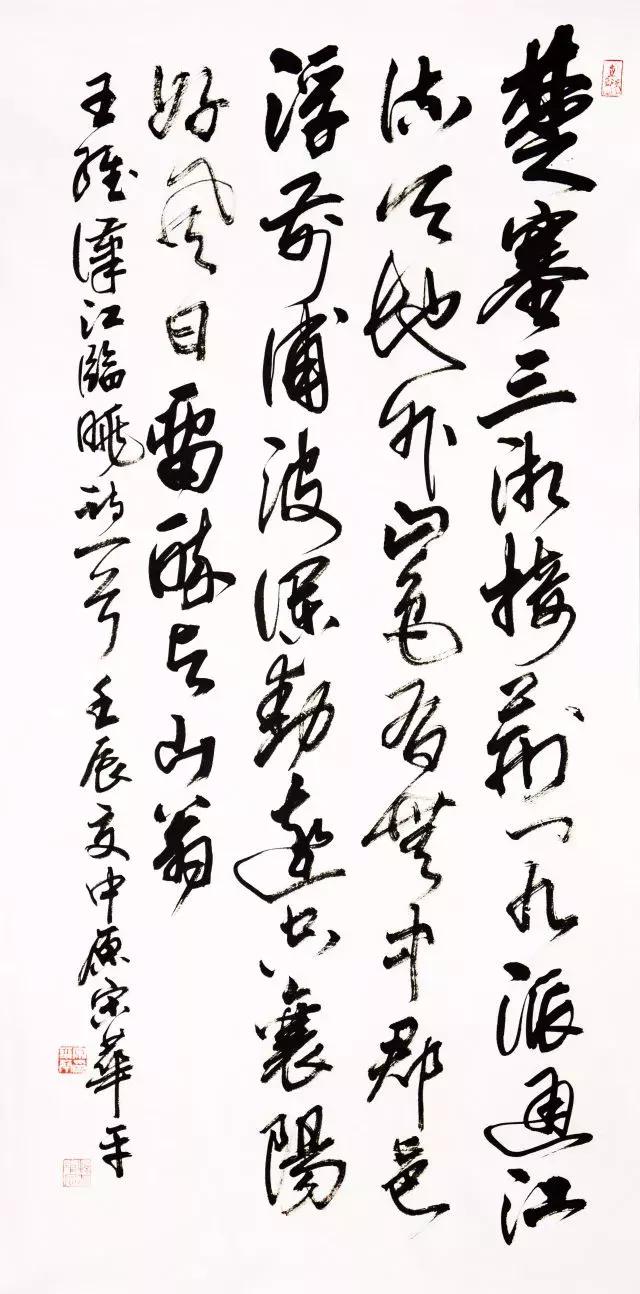 楚塞三湘接荆門九派通江
流天地外山色有無中郡邑
浮前浦波瀾動遠空襄陽
好風日畱醉与山翁
王維漢江臨眺詩一首 壬辰夏中原宋華平